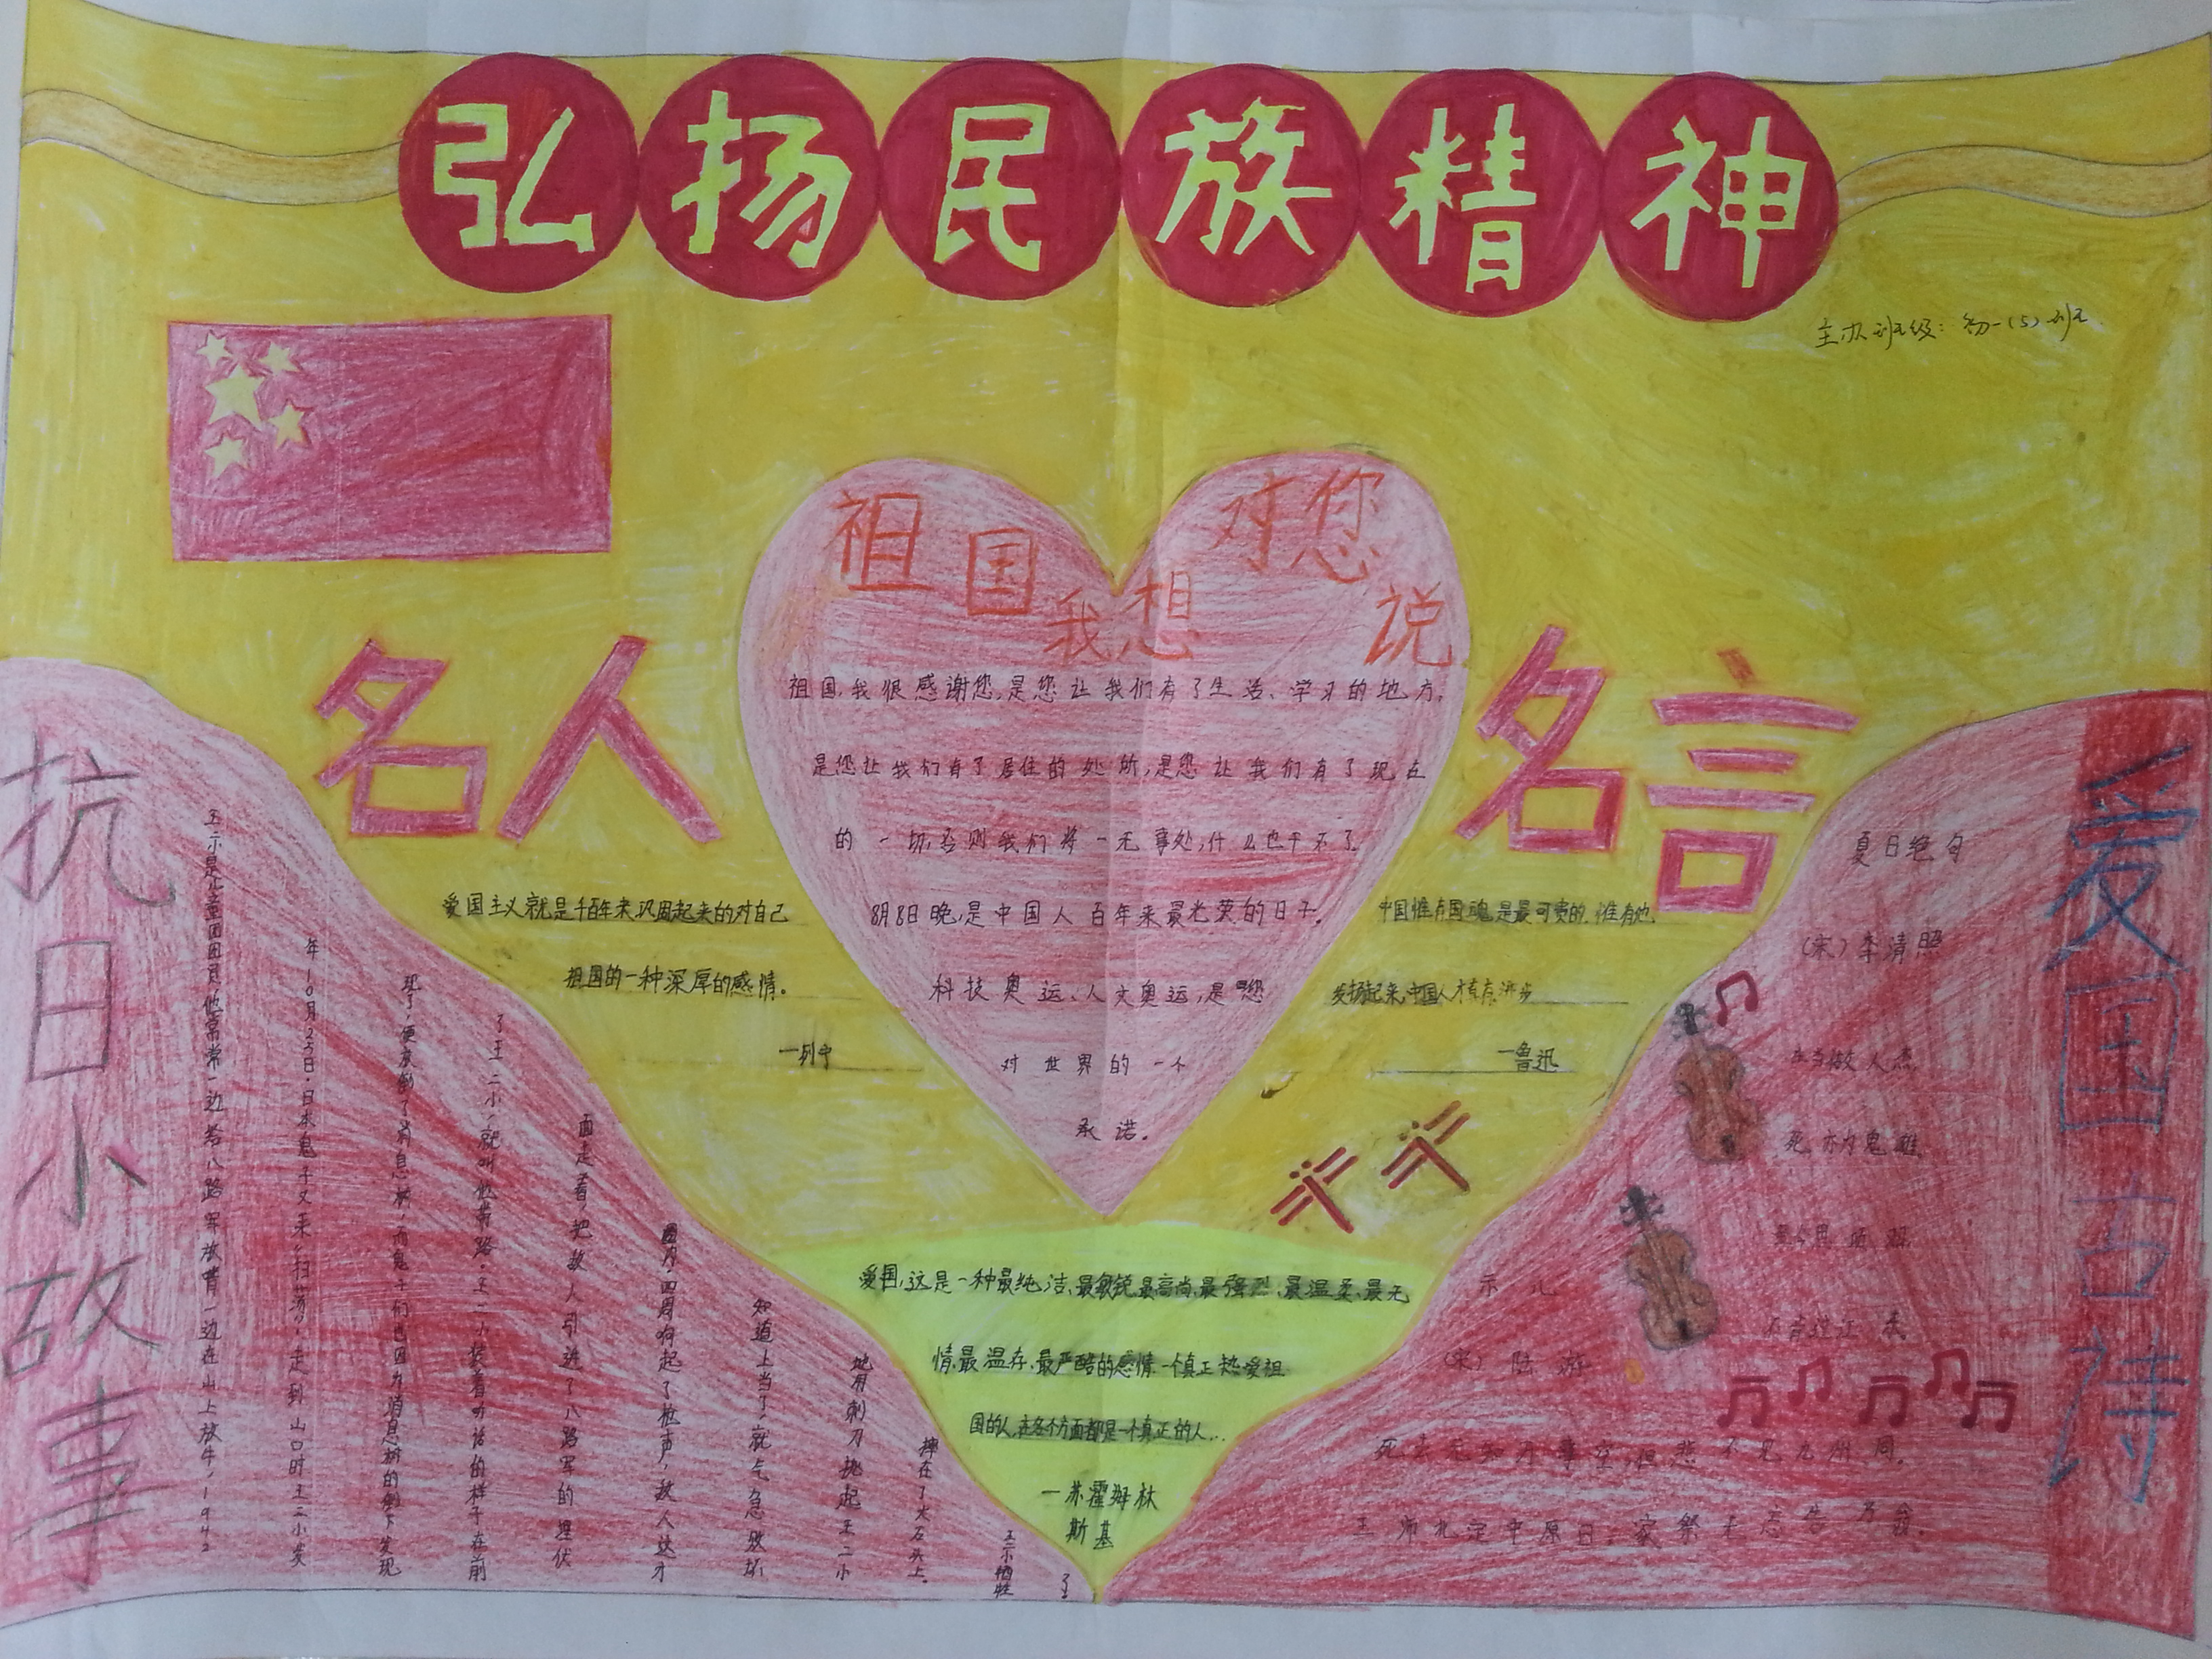 弘扬民族精神
主办班级：初一(5)班
祖国我想对您说
祖国,我很感谢您,是您让我们有了生活、学习的地方,
是您让我们有了居住的处所,是您让我们有了现在
的一切,否则我们将一无事处,什么也干不了.
8月8日晚,是中国人百年来最光荣的日子.
科技奥运、人文奥运,是您
对世界的一个
承诺.
名人
名言
爱国主义就是千百年来巩固起来的对自己
祖国的一种深厚的感情.
—列宁
中国惟有国魂是最可贵的,惟有他
发扬起来,中国人才有进步
—鲁迅
爱国,这是一种最纯洁、最敏锐、最高尚、最强烈、最温柔、最无
情、最温存、最严酷的感情一个真正热爱祖
国的人,在各个方面都是一个真正的人...
—苏霍姆林
斯基
抗日小故事
王二小是儿童团团员,他常常一边给八路军放哨一边在山上放牛,1942
年10月25日,日本鬼子又来“扫荡”,走到山口时王二小发
现了,便放倒了消息树,而鬼子们也因为消息树的倒下发现
了王二小,就叫他带路.王二小装着听话的样子在前
面走着,把敌人引进了八路军的埋伏
圈内,四周响起了枪声,敌人这才
知道上当了,就气急败坏
地用刺刀挑起王二小
摔在了大石头上.
王二小牺牲
了
爱国古诗
夏日绝句
(宋)李清照
生当做人杰,
死亦为鬼雄.
至今思项羽
不肯过江东.
示儿
(宋)陆游
死去元知万事空,但悲不见九州同.
王师北定中原日,家祭无忘告乃翁.